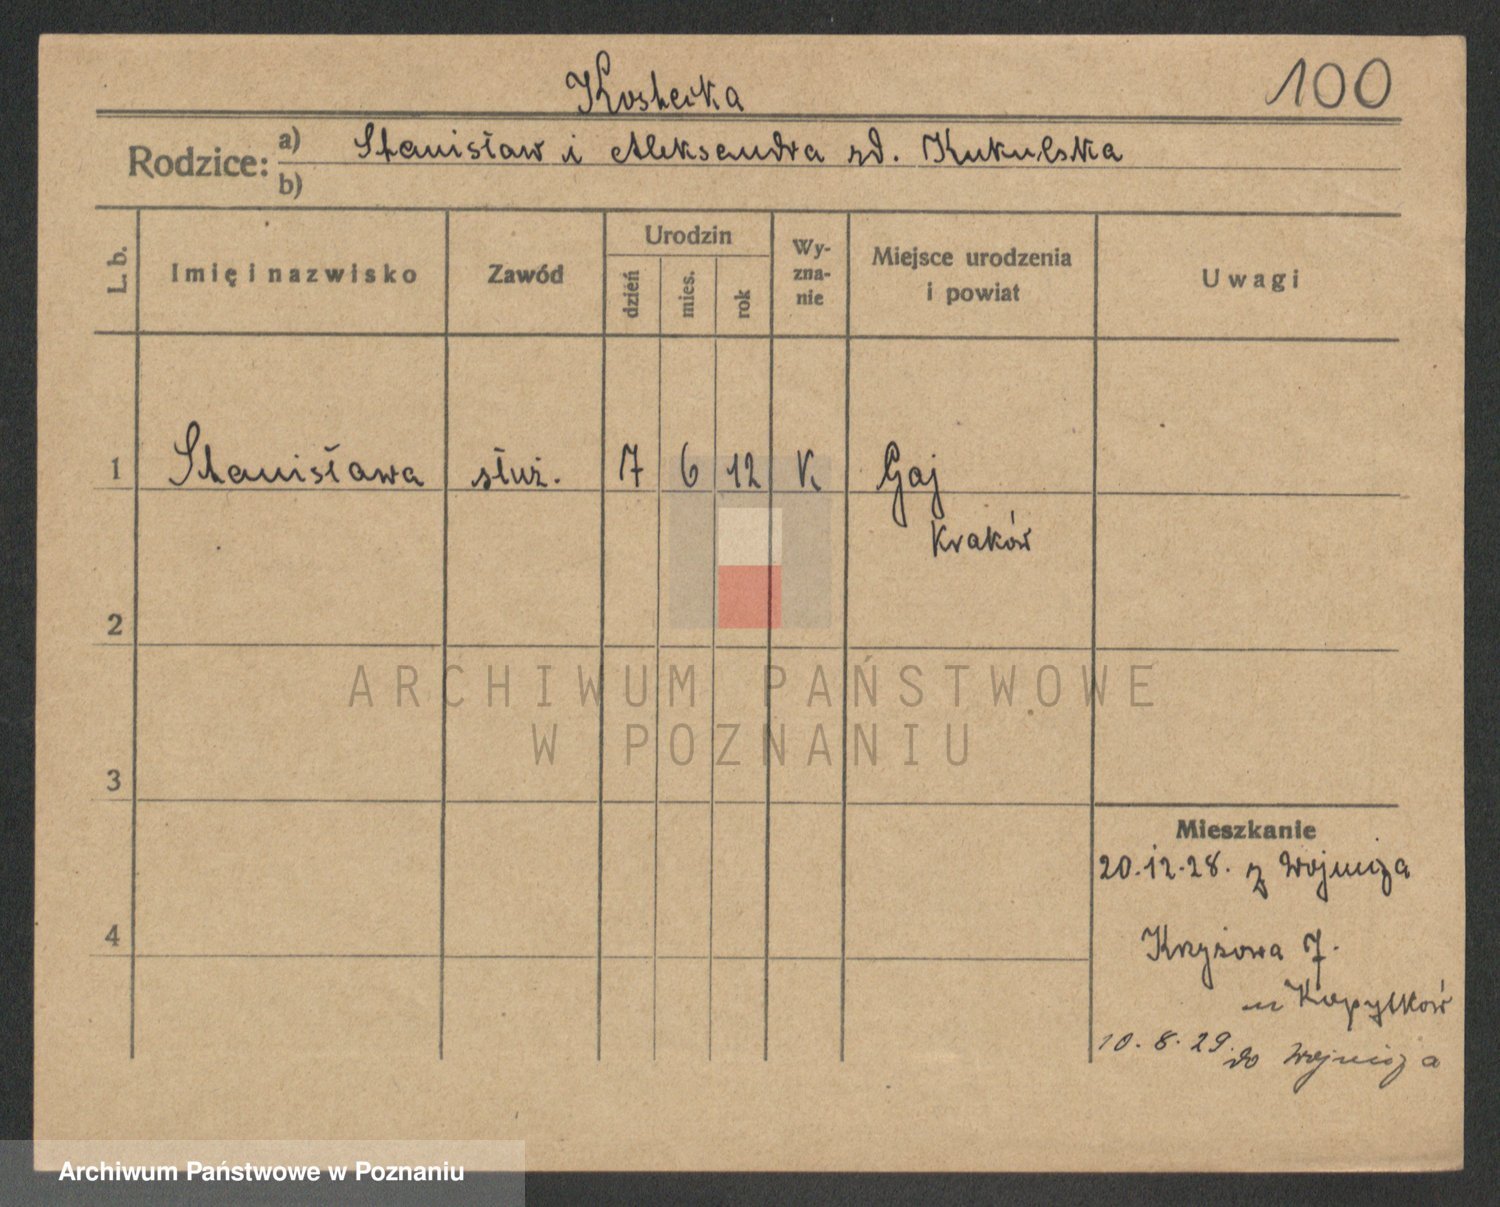 Kostecka
100
Rodzice: a) Stanisław i Aleksandra zd. Kukulska
b)
L. b.
Imię i nazwisko
Zawód
Urodzin
dzień
mies.
rok
Wy-
zna-
nie
Miejsce urodzenia
i powiat
Uwagi
1 Stanisława służ. 7 6 12 K Gaj
Kraków
2
3
4
Mieszkanie
20.12.28. z
Krzyżowa 7.
u
10.8.29. do
ARCHIWUM PAŃSTWOWE
W POZNANIU
Archiwum Państwowe w Poznaniu